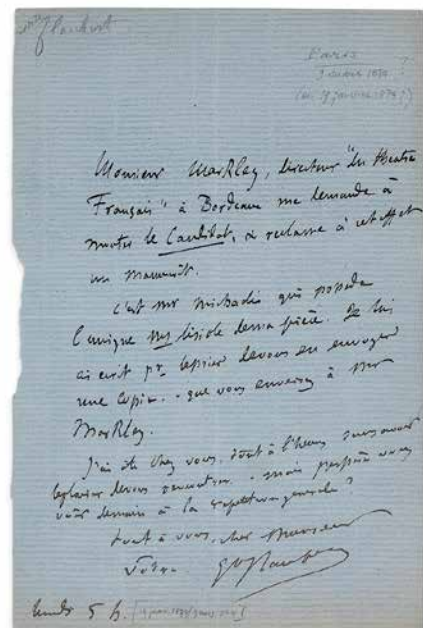 Flaubert
Paris
Monsieur Markley, directeur "du théatre
Français" à Bordeaux me demande à
monter le Candidat, & reclame à cet effet
un manuscrit.
c'est mr Michaelis qui possede
l'unique ms lisible de ma pièce. Je lui
ai ecrit pr le prier de vous en envoyer
une copie. - que vous enverrez à Mr
Markley.
J'ai été chez vous, tout à l'heure sans avoir
le plaisir de vous rencontrer. - mais j'espère vous
voir demain à la repetition generale ?
tout à vous, cher Monsieur
Votre
Gve Flaubert
lundi 5 h.